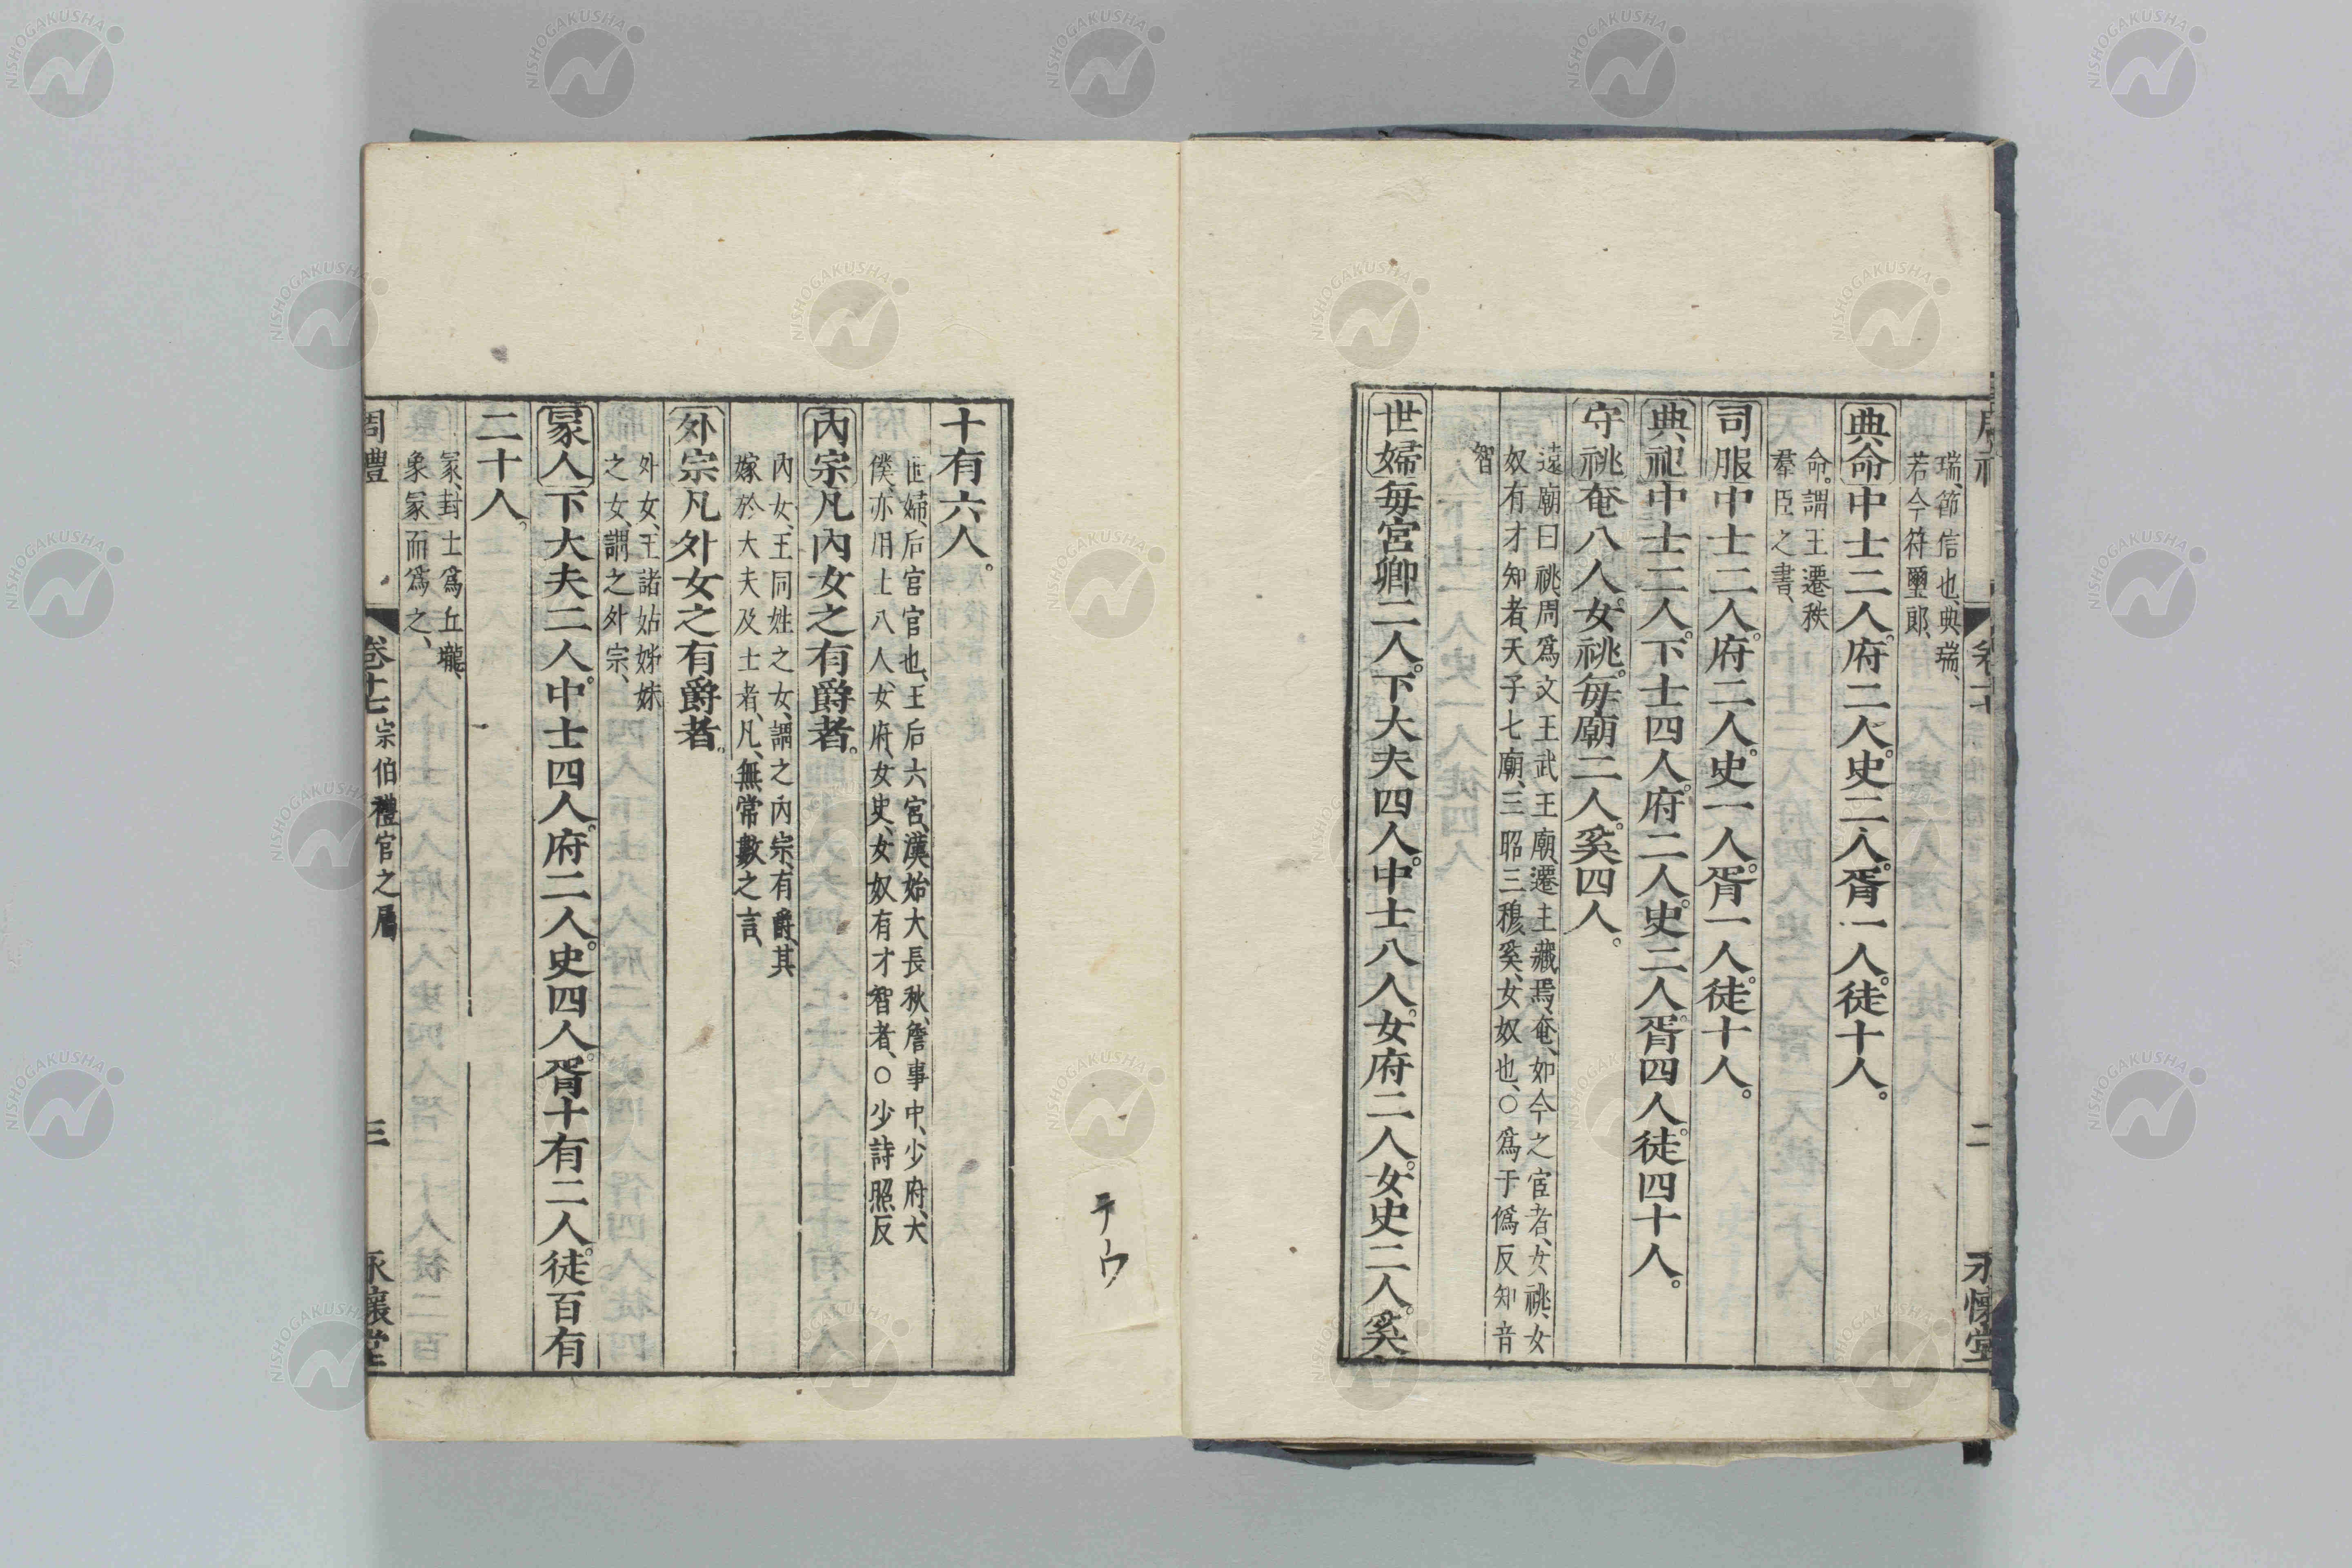 瑞、節信也、典瑞、
若今符璽郎、
典命中士二人。府二人。史二人。胥一人。徒十人。
命。謂王遷秩
羣臣之書、
司服中士二人。府二人。史一人。胥一人。徒十人。
典祀中士二人。下士四人。府二人。史二人。胥四人。徒四十人。
守祧奄八人。女祧。每廟二人。奚四人。
遠廟曰祧、周爲文王武王廟、遷主藏焉、奄、如今之宦者、女祧、女
奴有才知者、天子七廟、三昭三穆、奚、女奴也、○爲于僞反知音
智
世婦每宮卿二人。下大夫四人。中士八人。女府二人。女史二人。奚
二
永懷堂
十有六人。
世婦、后宮官也、王后六宮、漢始大長秋、詹事中、少府、大
僕、亦用士八人、女府、女史、女奴有才智者、○少詩照反
內宗凡內女之有爵者。
內女、王同姓之女、謂之內宗、有爵、其
嫁於大夫及士者、凡、無常數之言、
外宗凡外女之有爵者。
外女、王諸姑姊妹
之女、謂之外宗、
冡人下大夫二人。中士四人。府二人。史四人。胥十有二人。徒百有
二十人。
冡、封士爲丘壠、
象冡而爲之、
周禮
卷十七宗伯禮官之屬
三
永懷堂
テウ
NISHOGAKUSHA
NISHOGAKUSHA
NISHOGAKUSHA
NISHOGAKUSHA
NISHOGAKUSHA